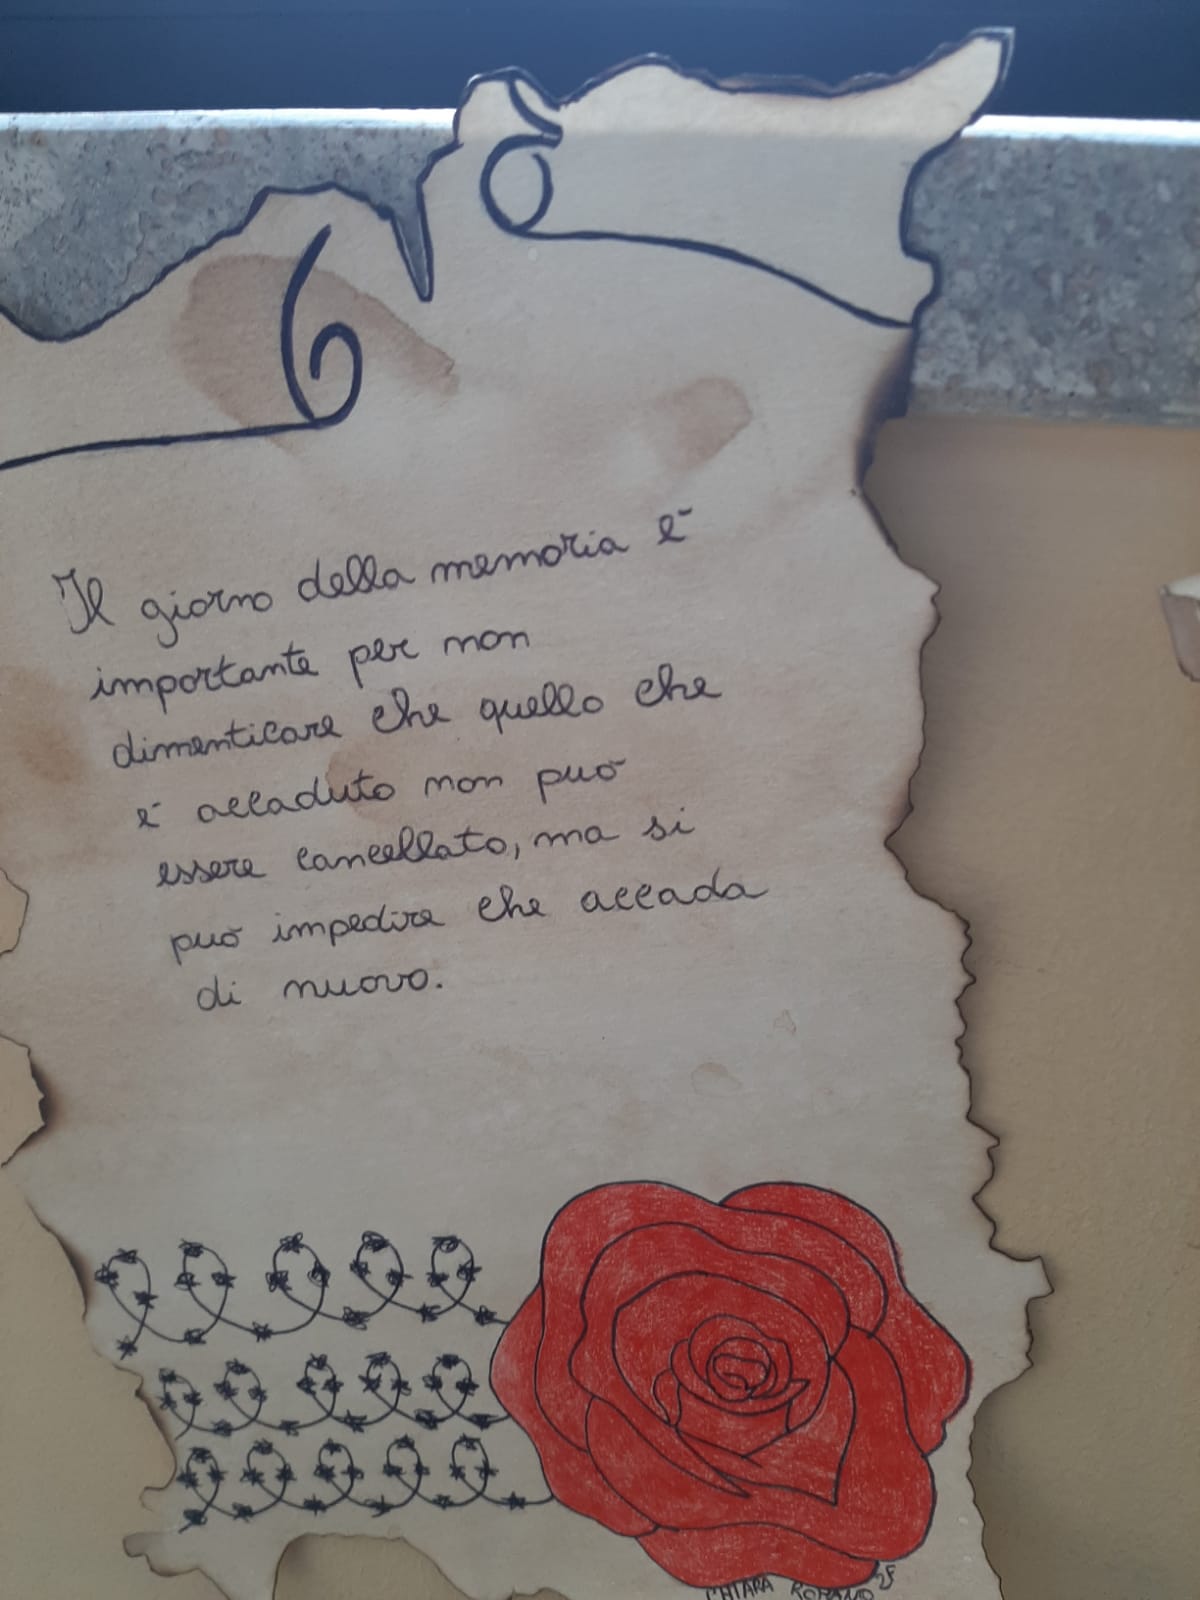 Il giorno della memoria è
importante per non
dimenticare che quello che
è accaduto non può
essere cancellato, ma si
può impedire che accada
di nuovo.
CHIARA ROMANO 2F